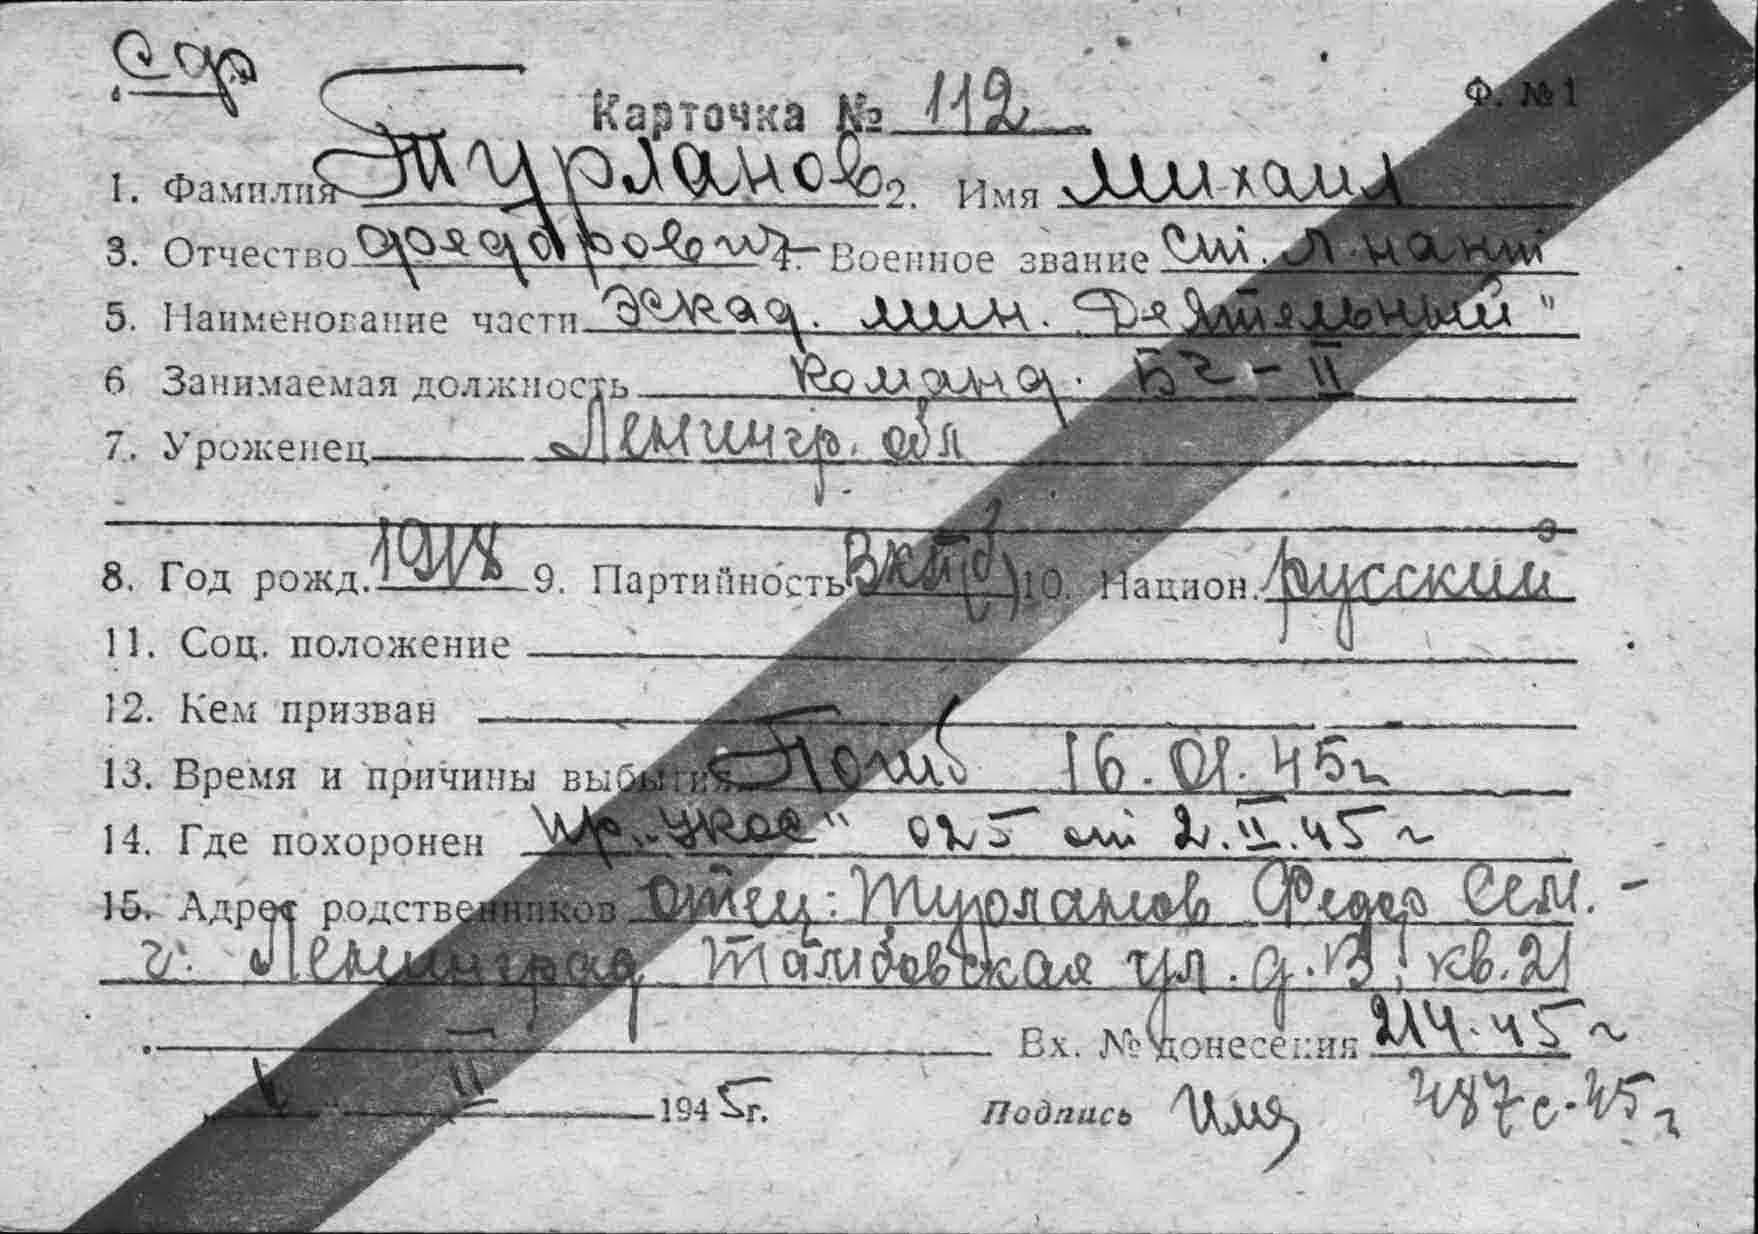 Сф
Карточка № 112 Ф. №1
1. Фамилия Турланов 2. Имя Михаил
3. Отчество Федорович 4. Военное звание ст. л-нант
5. Наименование части Эскад. мин. Деятельный"
6 Занимаемая должность команд. БЧ-II
7. Уроженец Ленингр. обл
8. Год рожд. 1918 9. Партийность ВКП(б) 10. Национ. русский
11. Соц. положение
12. Кем призван
13. Время и причины выбытия Погиб 16.01.45г
14. Где похоронен пр. „УКОС" 025 от 2.II.45 г
15. Адрес родственников отец: Турланов Федор Сем. -
г. Ленинград Тамбовская ул. д. кв. 21
Вх. № донесения 214.45 г
II 1945г. Подпись 487с.45 г